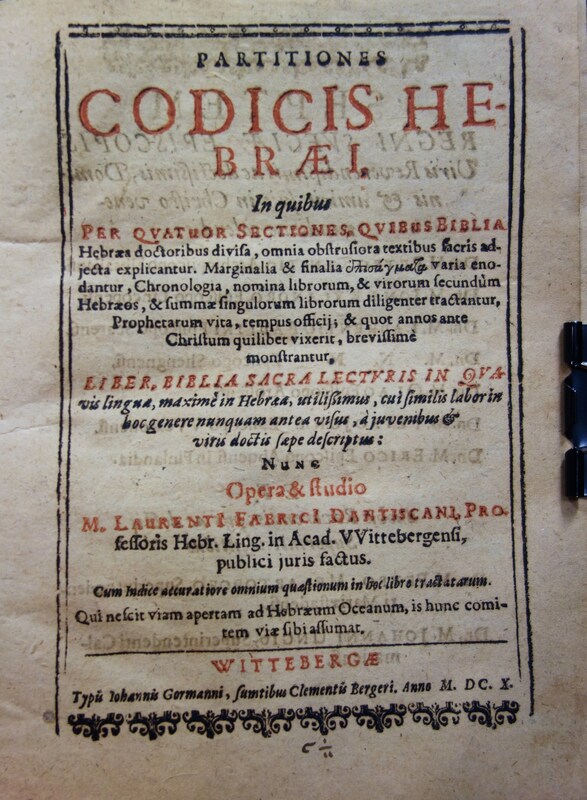 PARTITIONES
CODICIS HE-
BRÆI,
In quibus
PER QVATUOR SECTIONES, QVIBUS BIBLIA
Hebræa doctoribus divisa, omnia obstrusiora textibus sacris ad-
jecta explicantur. Marginalia & finalia varia eno-
dantur, Chronologia, nomina librorum, & virorum secundùm
Hebræos, & summæ singulorum librorum diligenter tractantur,
Prophetarum vita, tempus officij; & quot annos ante
Christum quilibet vixerit, brevissimè
monstrantur,
LIBER, BIBLIA SACRA LECTVRIS IN QVA-
vis lingua, maximè in Hebræa, utilissimus, cui similis labor in
hoc genere nunquam antea visus, à juvenibus &
viris doctis sæpe descriptus:
Nunc
Opera & studio
M. LAURENTI FABRICI DANTISCANI, PRO-
fessoris Hebr. Ling. in Acad. VVittebergensi,
publici juris factus.
Cum Indice accuratiore omnium quæstionum in hoc libro tractatarum.
Qui nescit viam apertam ad Hebræum Oceanum, is hunc comi-
tem viæ sibi assumat.
WITTEBERGÆ
Typis Iohannis Gormanni, sumtibus Clementis Bergeri, Anno M. DC. X.